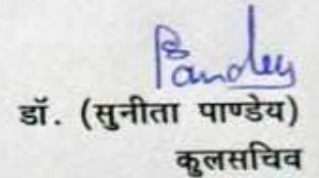 Pandey
डॉ. (सुनीता पाण्डेय)
कुलसचिव